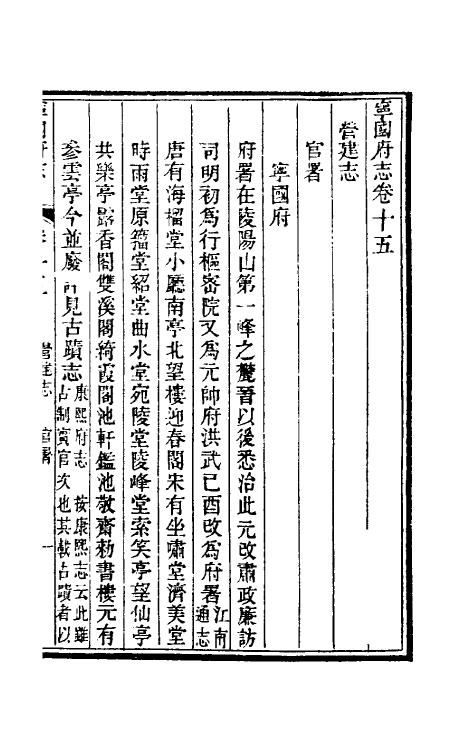 寧國府志卷十五
營建志
官署
寧國府
府署在陵陽山第一峰之麓晉以後悉治此元改肅政廉訪
司明初爲行樞密院又爲元帥府洪武己酉改爲府署江南通志
唐有海榴堂小廳南亭北望樓迎春閣宋有坐嘯堂濟美堂
時雨堂原籀堂紹堂曲水堂宛陵堂陵峰堂索笑亭望仙亭
共樂亭路香閣雙溪閣綺霞閣池軒鑑池敬齋勅書樓元有
叅雲亭今並廢 見古蹟志康熙府志 按康熙志云此雖
古制實官次也其載古蹟者以
寧國府志 卷十五 營建志 官署 一